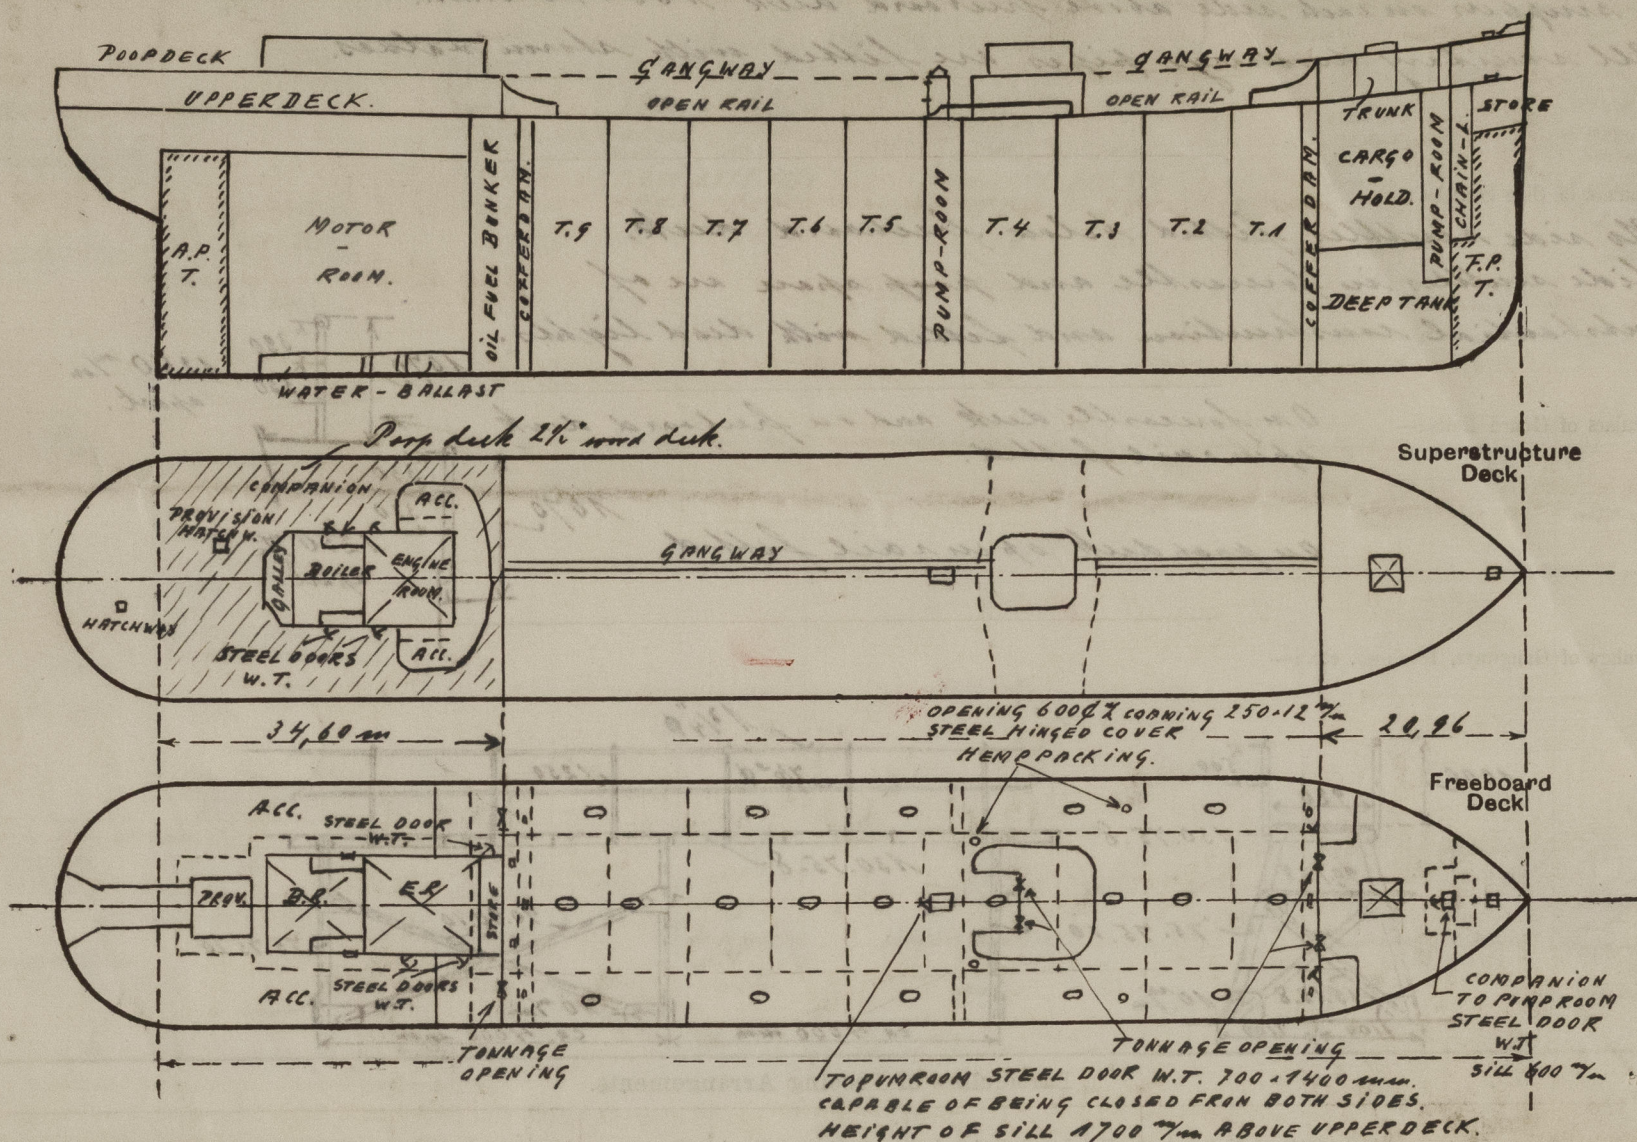 POOPDECK
GANGWAY
GANGWAY
UPPERDECK.
OPEN RAIL
OPEN RAIL
TRUNK
STORE
CARGO
-
HOLD.
MOTOR
-
ROOM.
A.P.
T.
OIL FUEL BUNKER
COFFERDAM.
T.9
T.8
T.7
T.6
T.5
PUMP-ROOM
T.4
T.3
T.2
T.1
COFFERDAM.
PUMP-ROOM
CHAIN-L.
F.P.
T.
DEEP TANK
WATER-BALLAST
Poop deck 2½" wood deck.
Superstructure
Deck
COMPANION
ACC.
PROVISION
HATCHW.
GALLEY
BOILER
ENGINE
ROOM.
GANGWAY
HATCHWAY
STEEL DOORS
W.T.
ACC.
34,60 m
OPENING 600 COAMING 250×12 m/m
STEEL HINGED COVER
HEMP PACKING.
20,96
Freeboard
Deck
ACC.
STEEL DOOR
W.T.
PROV.
B.R.
E.R.
STORE
ACC.
STEEL DOORS
W.T.
TONNAGE
OPENING
TONNAGE OPENING
COMPANION
TO PUMPROOM
STEEL DOOR
W.T
SILL 600 m/m
TOPUMROOM STEEL DOOR W.T. 700×1400 mm.
CAPABLE OF BEING CLOSED FRON BOTH SIDES.
HEIGHT OF SILL 1700 m/m ABOVE UPPERDECK.